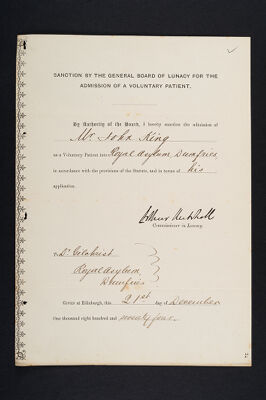 SANCTION BY THE GENERAL BOARD OF LUNACY FOR THE
ADMISSION OF A VOLUNTARY PATIENT.
By Authority of the Board, I hereby sanction the admission of
Mr. John King
as a Voluntary Patient into Royal Asylum Dumfries,
in accordance with the provisions of the Statute, and in terms of his
application.
Arthur Mitchell
Commissioner in Lunacy.
To Dr. Gilchrist
Royal Asylum
Dumfries
Given at Edinburgh, this 21st day of December
One thousand eight hundred and seventy four.